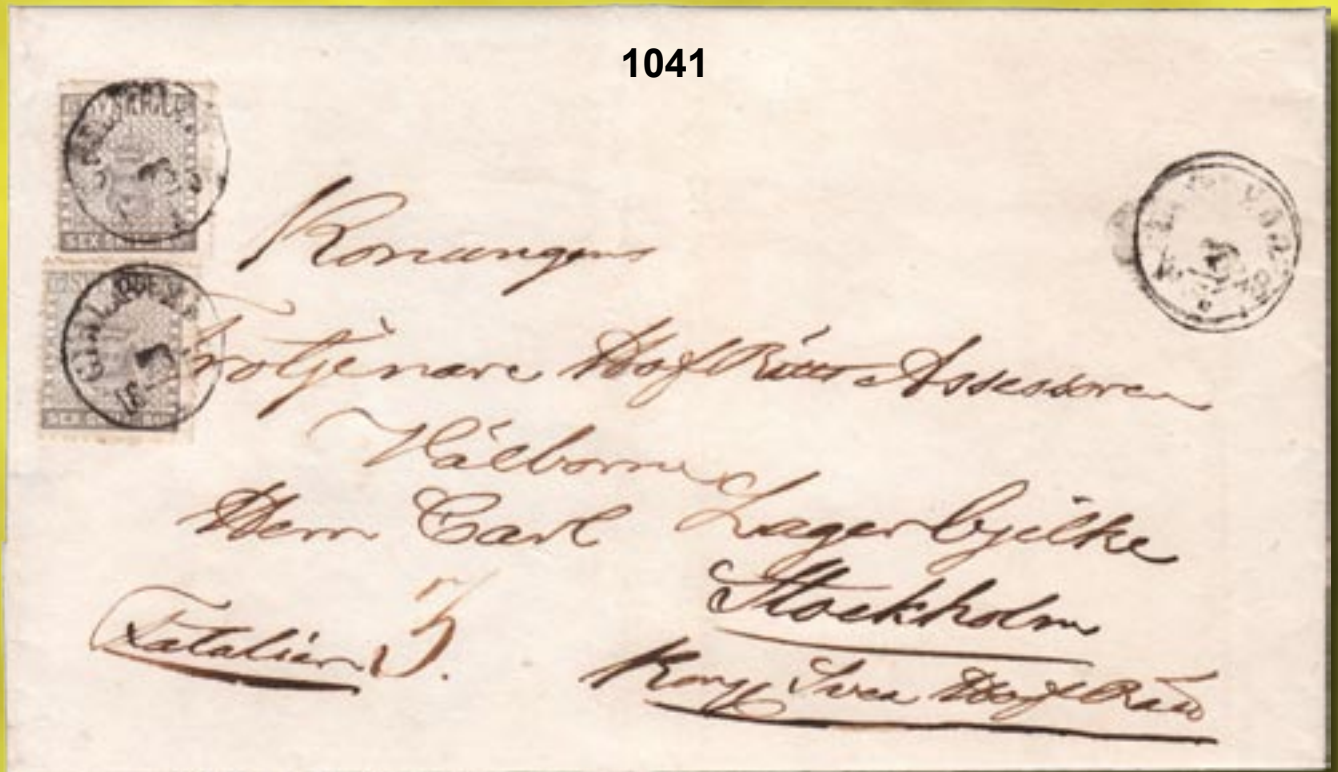 1041
SEX SKILL. BCO
SEX SKILL. BCO
Konungens
Trotjenare HofRätts Assessoren
Välborne
Herr Carl Lagerbjelke
Stockholm
Fatalier 3.
Kongl Svea HofRätt